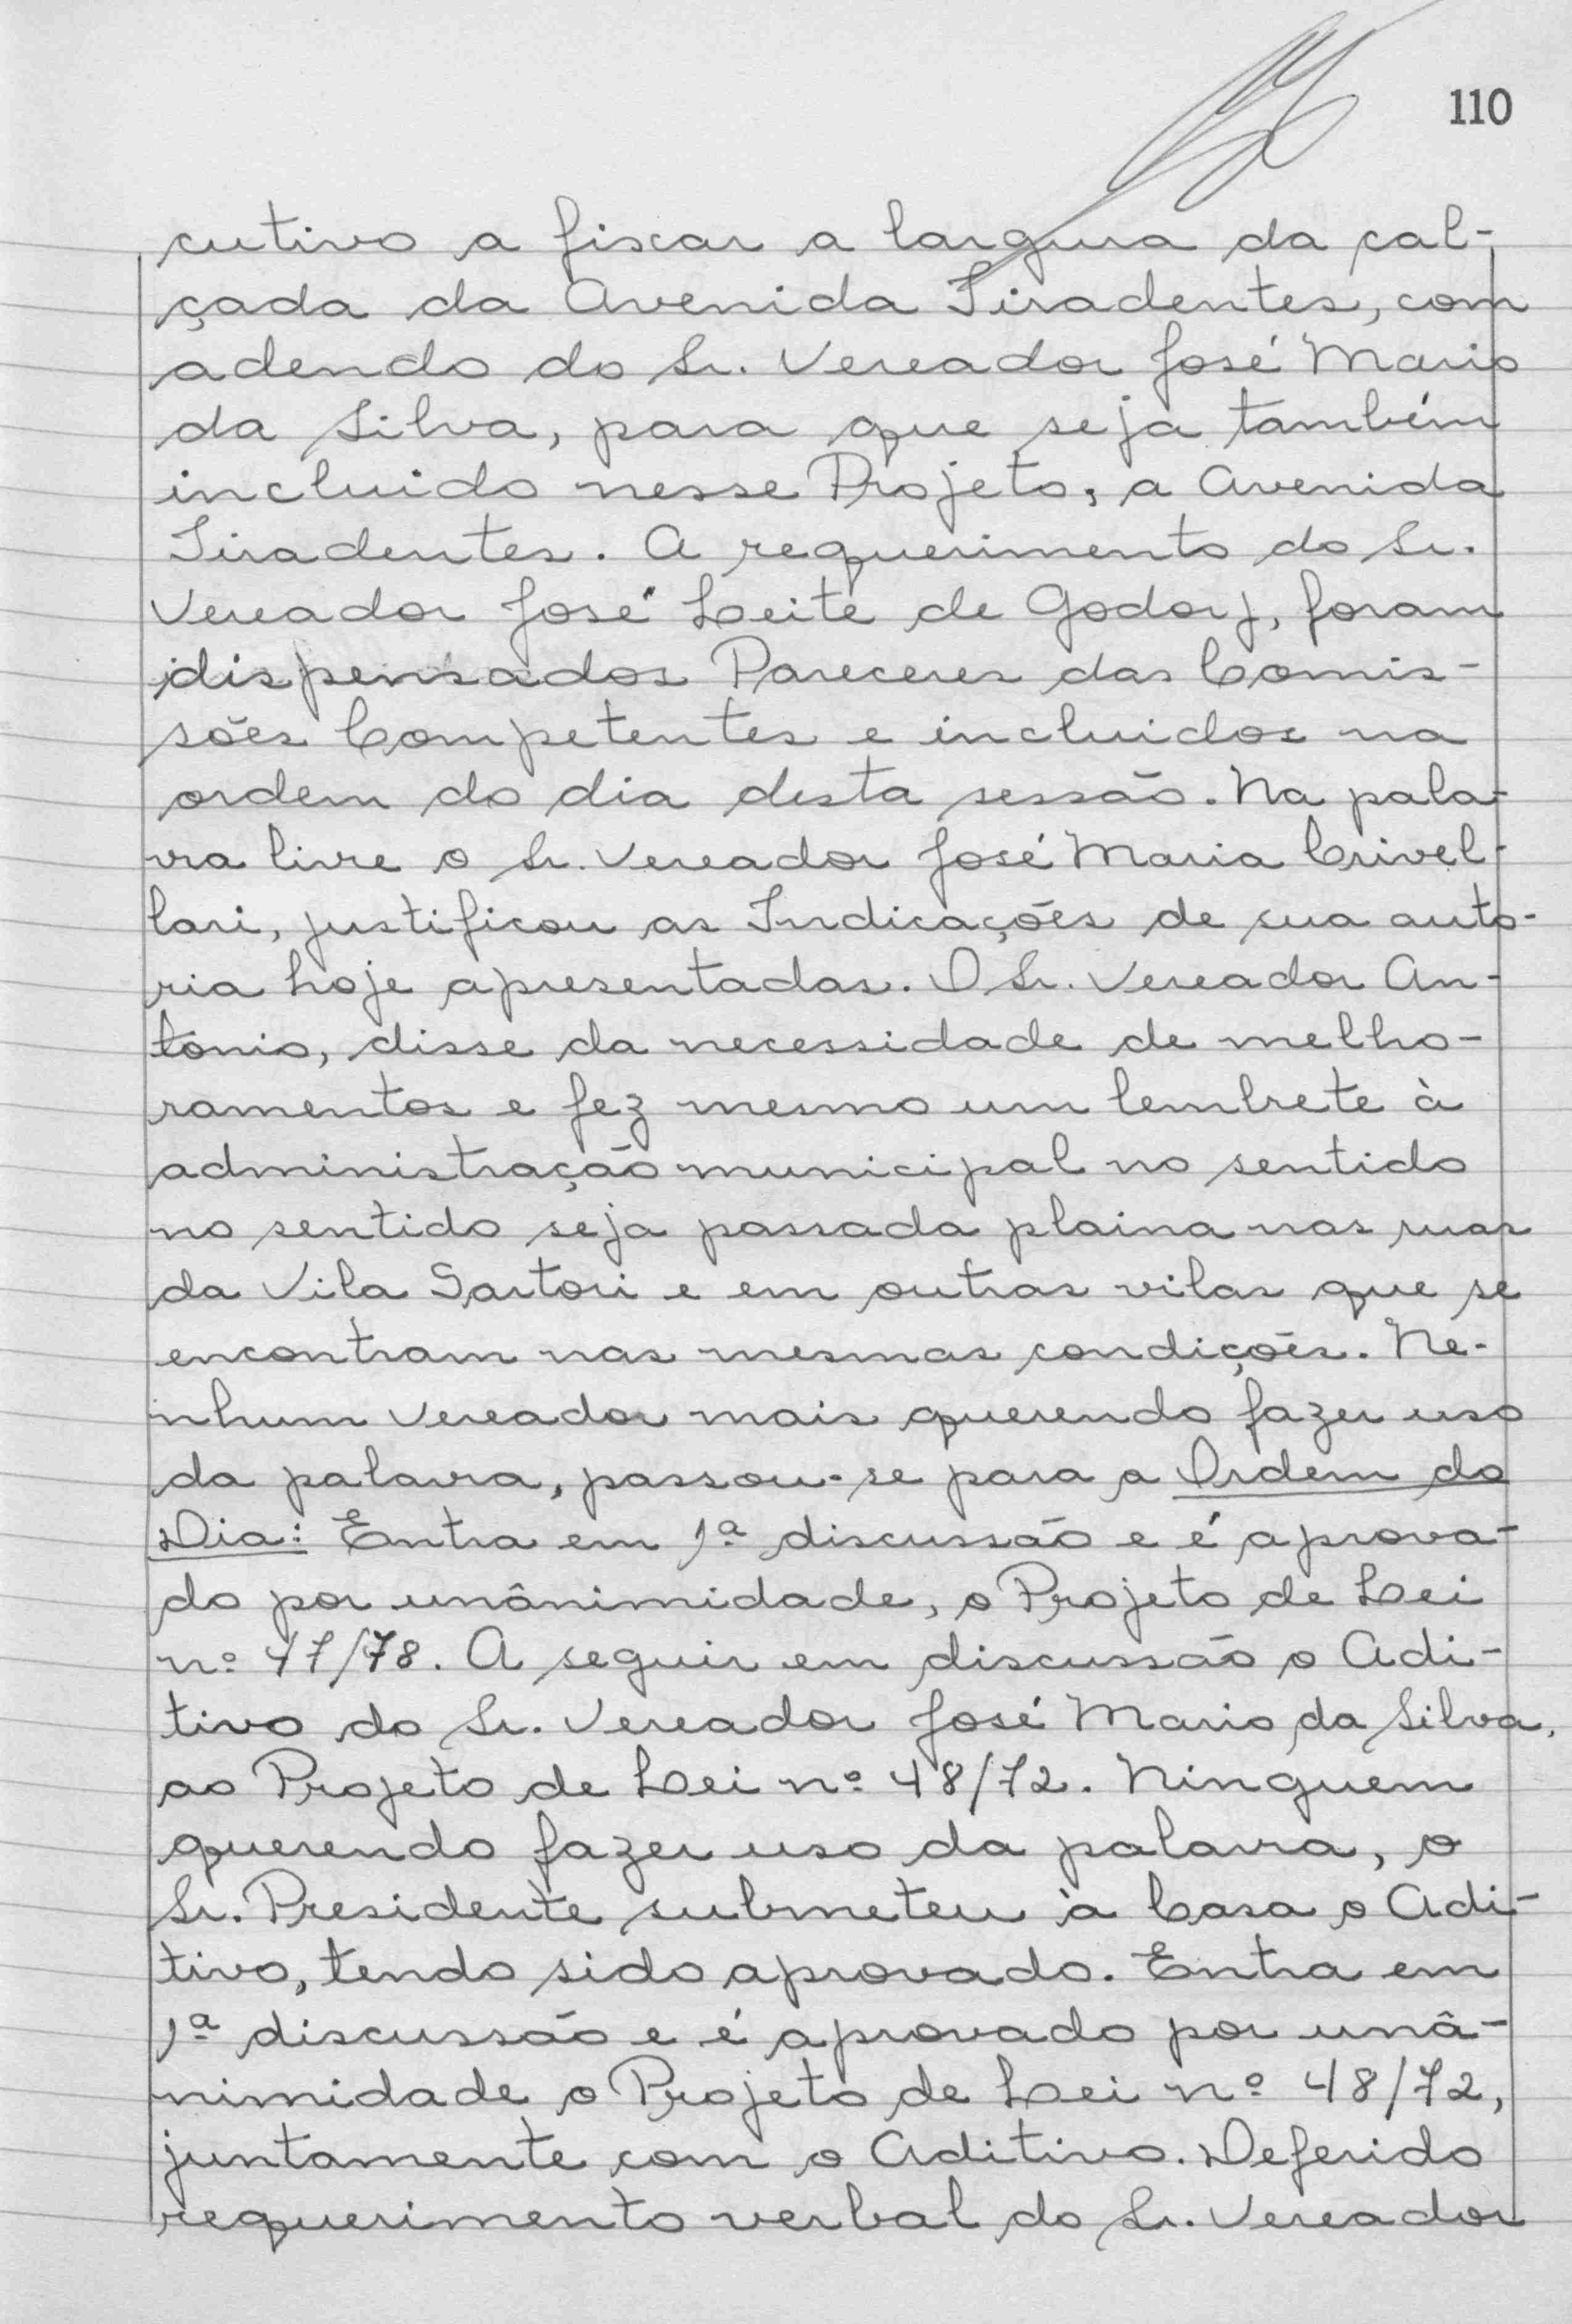 110
cutivo a fiscar a largura da cal-
çada da Avenida Tiradentes, com
adendo do Sr. Vereador José Mario
da Silva, para que seja também
incluido nesse Projeto, a Avenida
Tiradentes. A requerimento do Sr.
Vereador José Leite de Godoy, foram
dispensados Pareceres das Comis-
sões Competentes e incluidos na
ordem do dia desta sessão. Na pala-
vra livre o Sr. Vereador José Maria Crivel-
lari, justificou as Indicações de sua auto-
ria hoje apresentadas. O Sr. Vereador An-
tonio, disse da necessidade de melho-
ramentos e fez mesmo um lembrete à
administração municipal no sentido
no sentido seja passada plaina nas ruas
da Vila Sartori e em outras vilas que se
encontram nas mesmas condições. Ne-
nhum Vereador mais querendo fazer uso
da palavra, passou-se para a Ordem do
Dia: Entra em 1ª discussão e é aprova-
do por unânimidade, o Projeto de Lei
nº 47/78. A seguir em discussão o Adi-
tivo do Sr. Vereador José Mario da Silva,
ao Projeto de Lei nº 48/72. Ninguem
querendo fazer uso da palavra, o
Sr. Presidente submeteu à Casa o Adi-
tivo, tendo sido aprovado. Entra em
1ª discussão e é aprovado por unâ-
nimidade o Projeto de Lei nº 48/72,
juntamente com o Aditivo. Deferido
requerimento verbal do Sr. Vereador